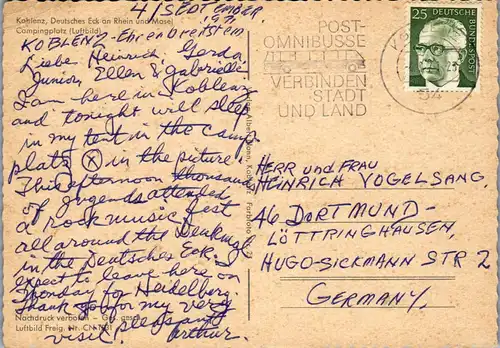 Koblenz, Deutsches Eck an Rhein und Mosel
Campingplatz (Luftbild)
4 SEPTEMBER
1971
KOBLENZ-Ehrenbreitstein
Liebe Heinrich, Gerda,
Junior, Ellen & Gabrielle:
I am here in Koblenz
and tonight will sleep
in my tent in the camp-
platz ⓧ in the picture.
This afternoon thousands
of jugends attended
a rock music fest
all around the Denkmal
in the Deutsches Eck. I
expect to leave here on
Monday for Heidelberg.
Thank you for my very
pleasant
visit. Arthur.
Nachdruck verboten – Ges. gesch.
Luftbild Freig. Nr.
POST-
OMNIBUSSE
VERBINDEN
STADT
UND LAND
25
DEUTSCHE
BUNDESPOST
HERR und FRAU
HEINRICH VOGELSANG.
46 DORTMUND-
LÖTTRINGHAUSEN,
HUGO-SICKMANN STR 2
GERMANY.